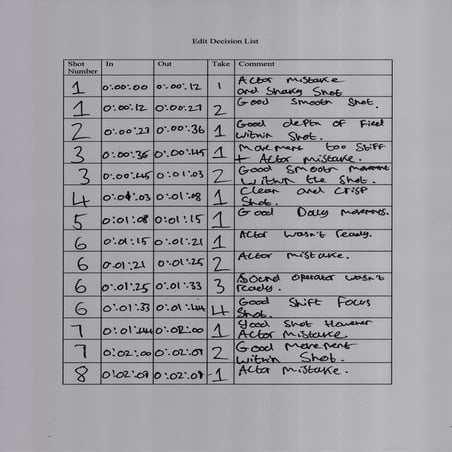 Edit Decision List
Shot Number In Out Take Comment
1 0:00:00 0:00:12 1 Actor mistake
and Shaky Shot
1 0:00:12 0:00:27 2 Good smooth Shot.
2 0:00:27 0:00:36 1 Good depth of field
within Shot.
3 0:00:36 0:00:45 1 Movement too Stiff
+ Actor Mistake.
3 0:00:45 0:01:03 2 Good Smooth movement
Within the Shot.
4 0:01:03 0:01:08 1 Clean and crisp
Shot.
5 0:01:08 0:01:15 1 Good Dolly
6 0:01:15 0:01:21 1 Actor wasn't ready.
6 0:01:21 0:01:25 2 Actor mistake.
6 0:01:25 0:01:33 3 Sound operator wasn't
ready.
6 0:01:33 0:01:44 4 Good Shift Focus
Shot.
7 0:01:44 0:02:00 1 Good Shot However
Actor Mistake.
7 0:02:00 0:02:07 2 Good Movement
Within Shot.
8 0:02:07 1 Actor Mistake.